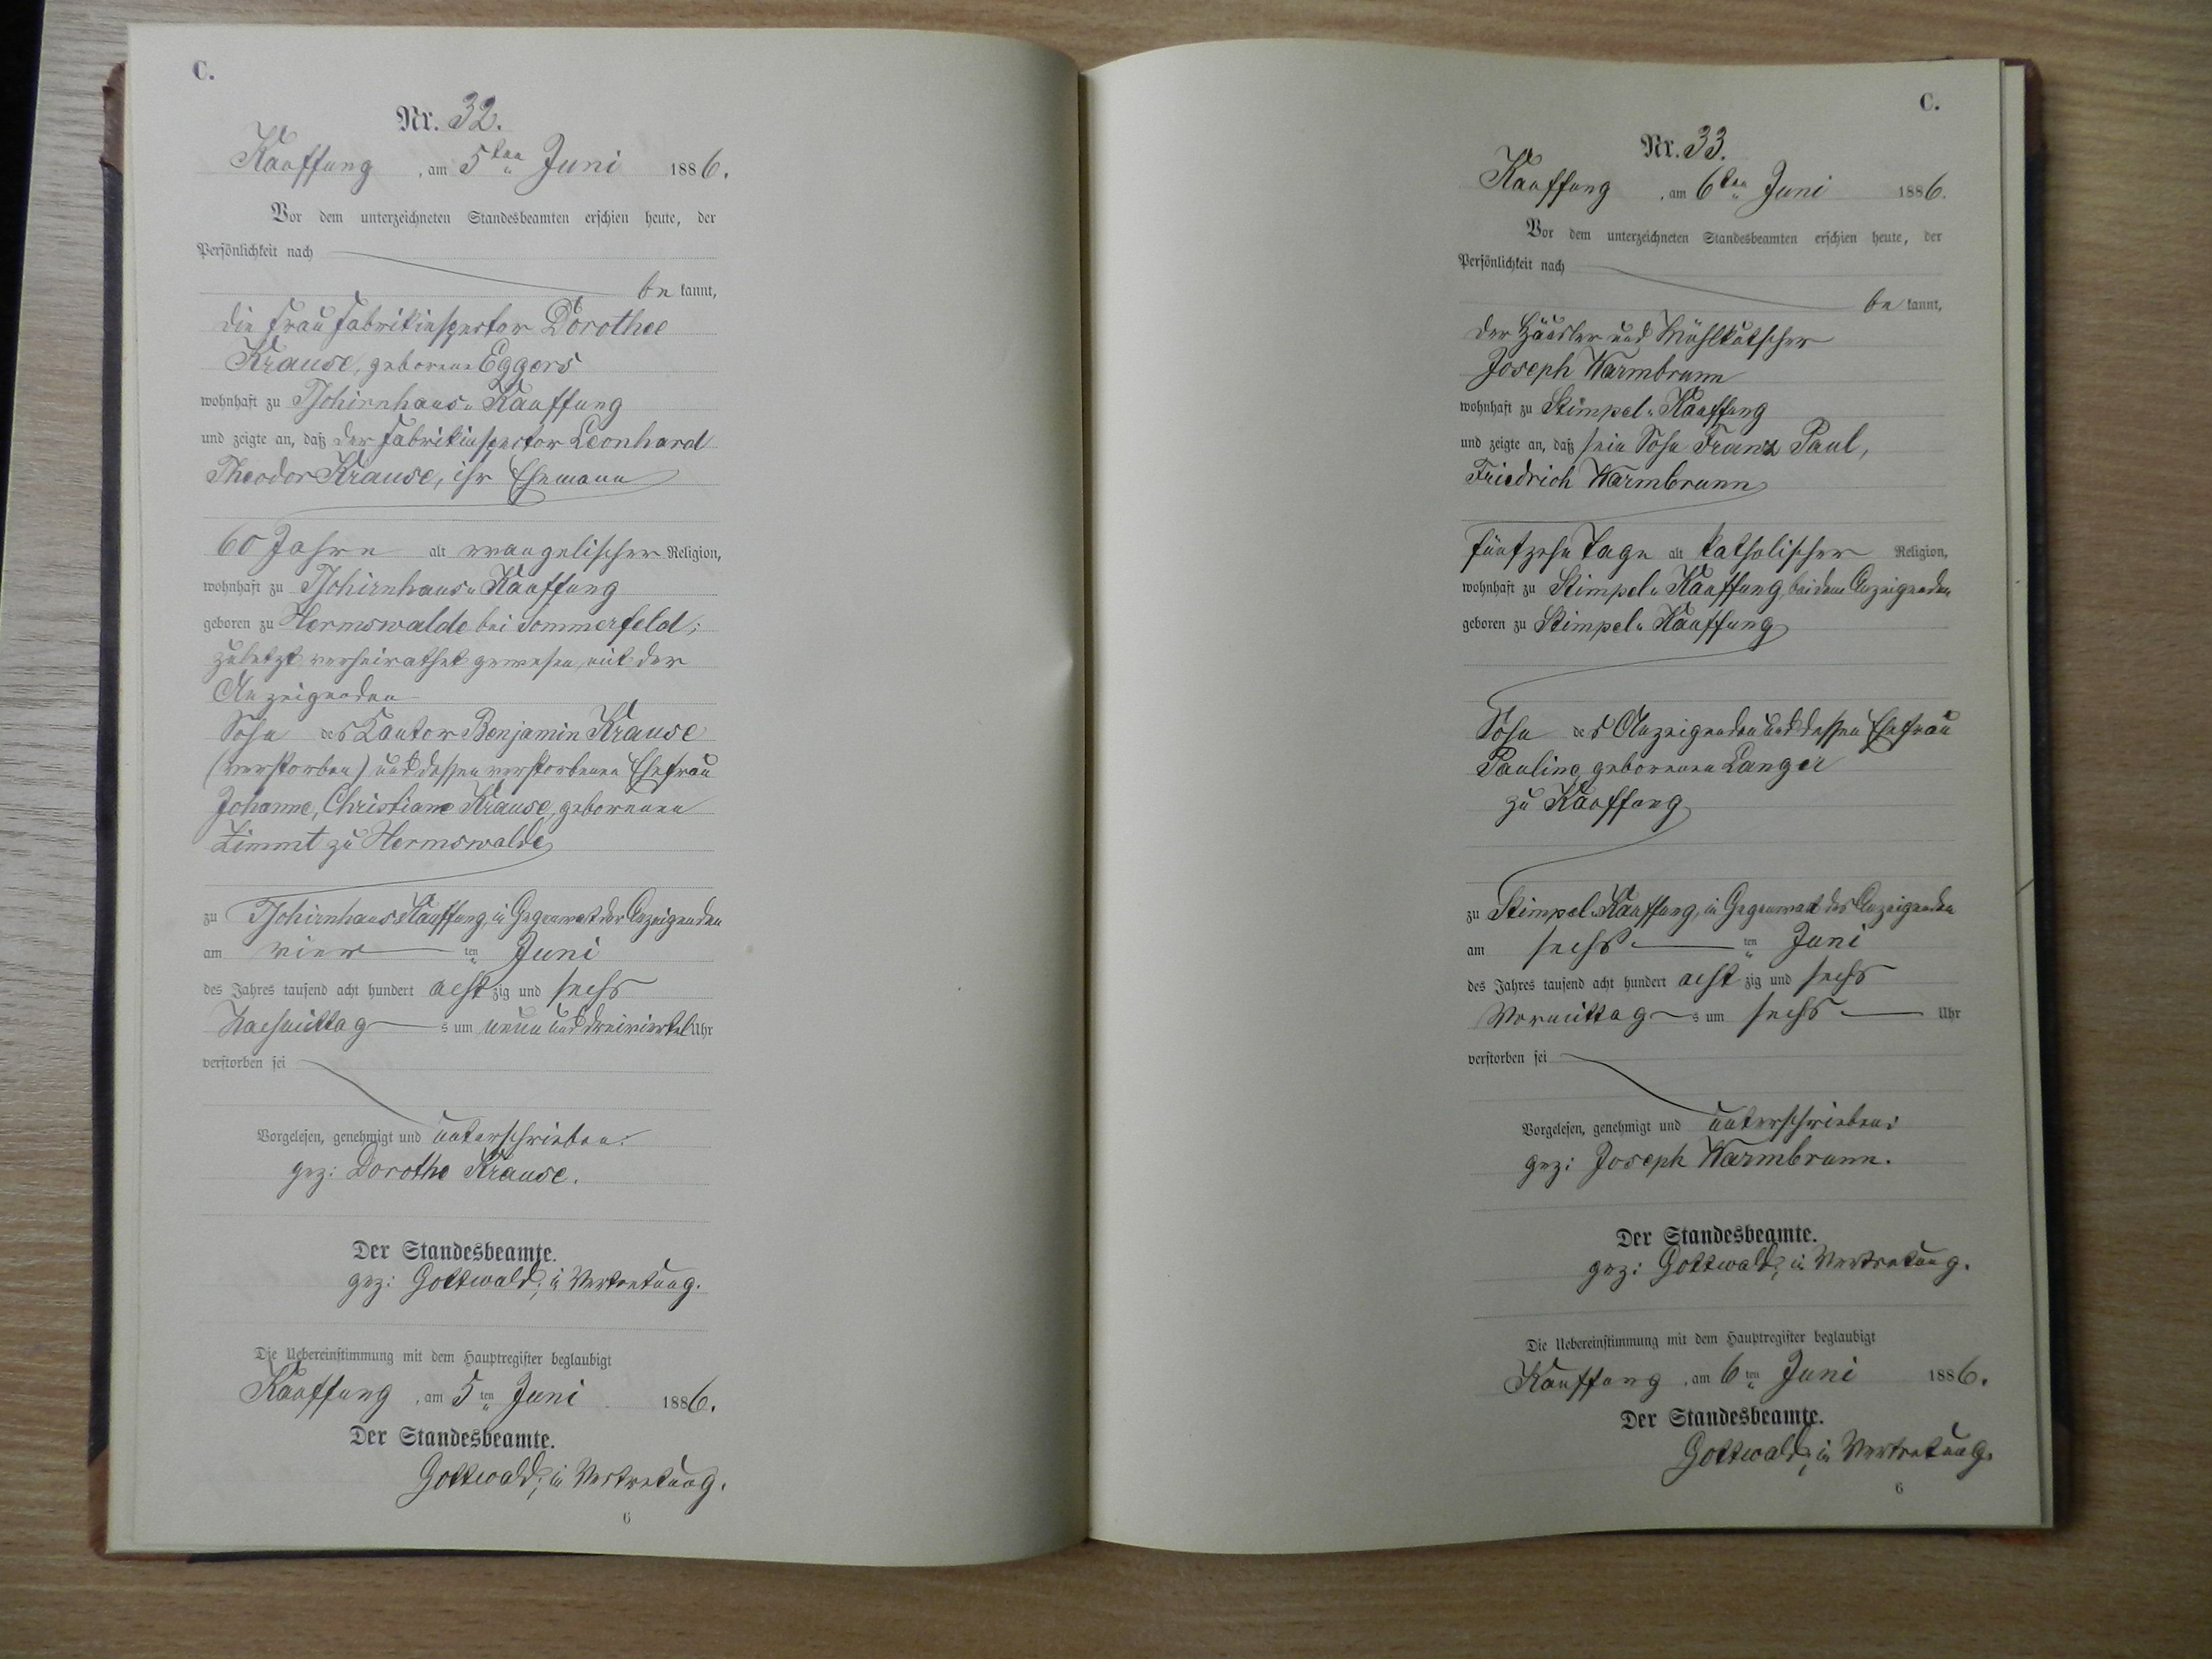 C.
Nr. 32.
Kauffung, am 5ten Juni 1886.
Vor dem unterzeichneten Standesbeamten erschien heute, der
Persönlichkeit nach
be kannt,
die Frau Fabrikinspector Dorothee
Krause, geborene Eggers
wohnhaft zu Tschirnhaus-Kauffung
und zeigte an, daß der Fabrikinspector Leonhard
Theodor Krause, ihr Ehemann
60 Jahre alt evangelischer Religion,
wohnhaft zu Tschirnhaus-Kauffung
geboren zu Hermswalde bei Sommerfeld;
zuletzt verheirathet gewesen mit der
Anzeigenden
Sohn des Kantor Benjamin Krause
(verstorben) und dessen verstorbenen Ehefrau
Johanne, Christiane Krause, geborenen
Zimmt zu Hermswalde
zu Tschirnhaus Kauffung, in Gegenwart der Anzeigenden
am vier ten Juni
des Jahres tausend acht hundert acht zig und sechs
Nachmittag s um neun und dreiviertel Uhr
verstorben sei
Vorgelesen, genehmigt und unterschrieben:
gez: Dorothe Krause.
Der Standesbeamte.
gez: Gottwald, in Vertretung.
Die Uebereinstimmung mit dem Hauptregister beglaubigt
Kauffung, am 5 ten Juni 1886.
Der Standesbeamte.
Gottwald, in Vertretung.
6
C.
Nr. 33.
Kauffung, am 6ten Juni 1886.
Vor dem unterzeichneten Standesbeamten erschien heute, der
Persönlichkeit nach
be kannt,
der Häusler und Mühlkutscher
Joseph Warmbrunn
wohnhaft zu Stimpel-Kauffung
und zeigte an, daß sein Sohn Franz Paul,
Friedrich Warmbrunn
fünfzehn Tage alt katholischer Religion,
wohnhaft zu Stimpel-Kauffung, bei dem Anzeigenden
geboren zu Stimpel-Kauffung
Sohn des Anzeigenden und dessen Ehefrau
Pauline, geborenen Langer
zu Kauffung
zu Stimpel-Kauffung, in Gegenwart des Anzeigenden
am sechs ten Juni
des Jahres tausend acht hundert acht zig und sechs
Vormittag s um sechs Uhr
verstorben sei
Vorgelesen, genehmigt und unterschrieben:
gez: Joseph Warmbrunn.
Der Standesbeamte.
gez: Gottwald, in Vertretung.
Die Uebereinstimmung mit dem Hauptregister beglaubigt
Kauffung, am 6 ten Juni 1886.
Der Standesbeamte.
Gottwald, in Vertretung.
6